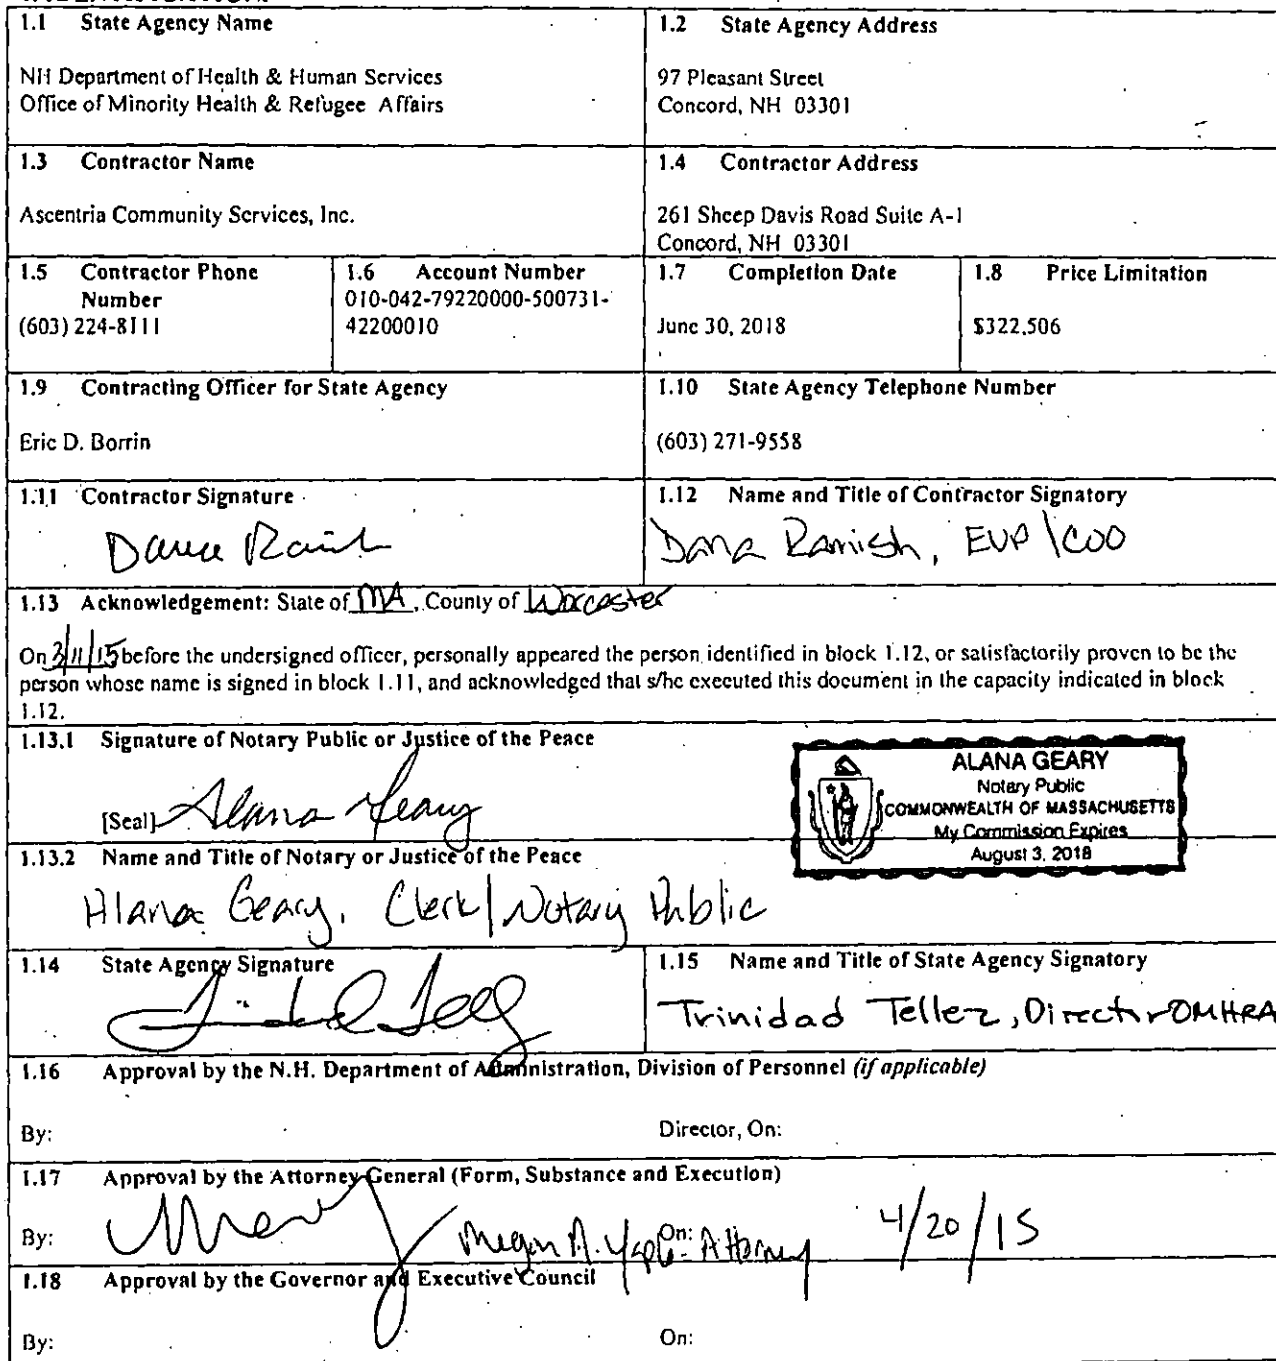 1.1 State Agency Name
NH Department of Health & Human Services
Office of Minority Health & Refugee Affairs
1.2 State Agency Address
97 Pleasant Street
Concord, NH 03301
1.3 Contractor Name
Ascentria Community Services, Inc.
1.4 Contractor Address
261 Sheep Davis Road Suite A-1
Concord, NH 03301
1.5 Contractor Phone
Number
(603) 224-8111
1.6 Account Number
010-042-79220000-500731-
42200010
1.7 Completion Date
June 30, 2018
1.8 Price Limitation
$322,506
1.9 Contracting Officer for State Agency
Eric D. Borrin
1.10 State Agency Telephone Number
(603) 271-9558
1.11 Contractor Signature
1.12 Name and Title of Contractor Signatory
Dana Ramish, EVP\COO
1.13 Acknowledgement: State of MA, County of Worcester
On 3/11/15 before the undersigned officer, personally appeared the person identified in block 1.12, or satisfactorily proven to be the
person whose name is signed in block 1.11, and acknowledged that s/he executed this document in the capacity indicated in block
1.12.
1.13.1 Signature of Notary Public or Justice of the Peace
[Seal] Alana Geary
ALANA GEARY
Notary Public
COMMONWEALTH OF MASSACHUSETTS
My Commission Expires
August 3, 2018
1.13.2 Name and Title of Notary or Justice of the Peace
Alana Geary, Clerk/Notary Public
1.14 State Agency Signature
1.15 Name and Title of State Agency Signatory
Trinidad Tellez, Director OMHRA
1.16 Approval by the N.H. Department of Administration, Division of Personnel (if applicable)
By:
Director, On:
1.17 Approval by the Attorney General (Form, Substance and Execution)
By:
Megan A. Yaple - Attorney
On:
4/20/15
1.18 Approval by the Governor and Executive Council
By:
On: